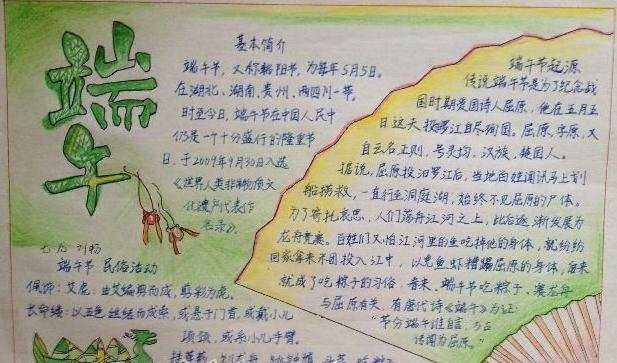 端午
基本简介
端午节，又称端阳节，为每年5月5日。
在湖北、湖南、贵州、四川一带。
时至今日，端午节在中国人民中
仍是一个十分盛行的隆重节
日，于2009年9月30日入选
《世界人类非物质文
化遗产代表作
名录》。
端午节 民俗活动
佩饰：艾虎：由艾编剪而成，剪彩为虎。
长命缕：以五色丝结而成索，或悬于门首，或戴小儿
项颈，或系小儿手臂。
端午节起源
传说端午节是为了纪念战
国时期爱国诗人屈原，他在五月五
日这天投汨罗江自尽殉国。屈原，字原，又
自云名正则，号灵均，汉族，楚国人。
据说，屈原投汨罗江后，当地百姓闻讯马上划
船捞救，一直行至洞庭湖，始终不见屈原的尸体。
为了寄托哀思，人们荡舟江河之上，此后逐渐发展为
龙舟竞赛。百姓们又怕江河里的鱼吃掉他的身体，就纷纷
回家拿来米团投入江中，以免鱼虾糟蹋屈原的身体，后来
就成了吃粽子的习俗。看来，端午节吃粽子、赛龙舟
与屈原有关，有唐代诗《端午》为证：
"节分端午谁自言，万古
传闻为屈原。"